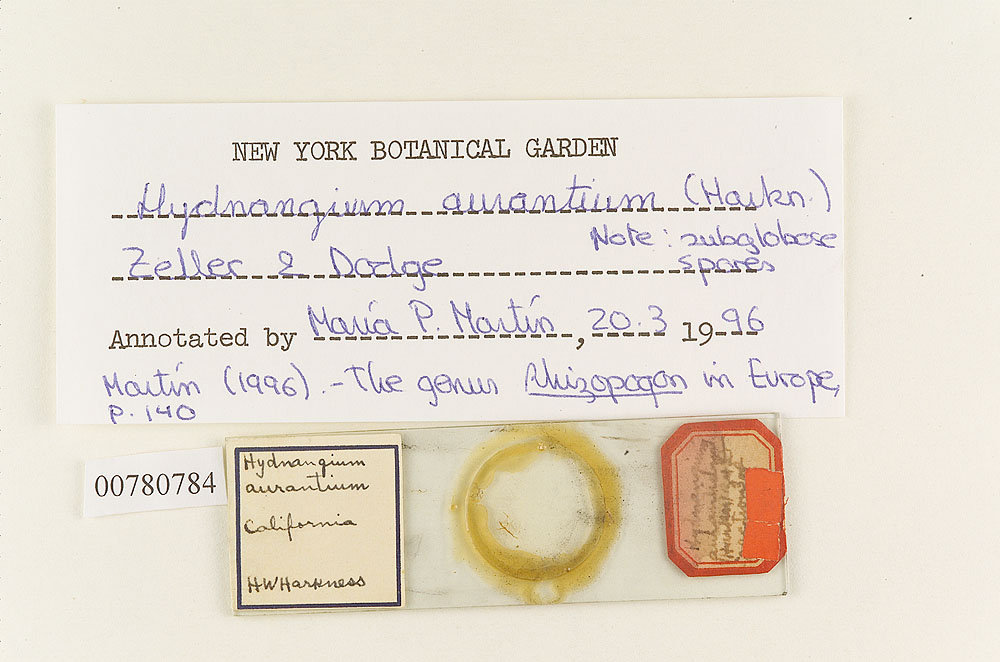 NEW YORK BOTANICAL GARDEN
Hydnangium aurantium (Harkn.)
Zeller & Dodge
Note: subglobose
spores
Annotated by María P. Martín, 20.3 1996
Martín (1996).-The genus Rhizopogon in Europe,
p. 140
00780784
Hydnangium
aurantium
California
HWHarkness